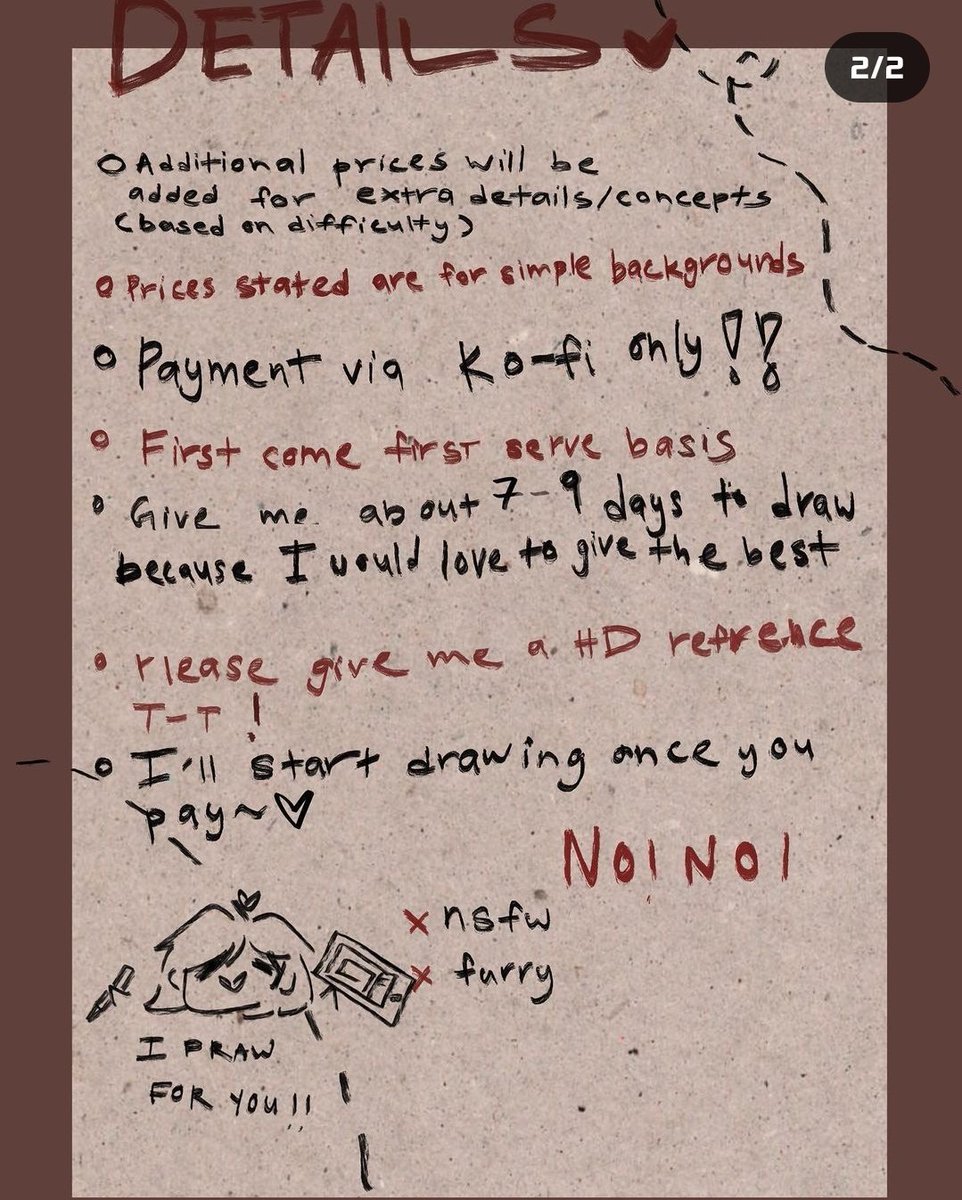 DETAILS
2/2
Additional prices will be
added for extra details/concepts
(based on difficulty)
Prices stated are for simple backgrounds
Payment via Ko-fi only!!
First come first serve basis
Give me about 7-9 days to draw
because I would love to give the best
Please give me a HD refrence
T-T !
I'll start drawing once you
pay~♡
NO! NO!
x nsfw
x furry
I DRAW
FOR YOU!!